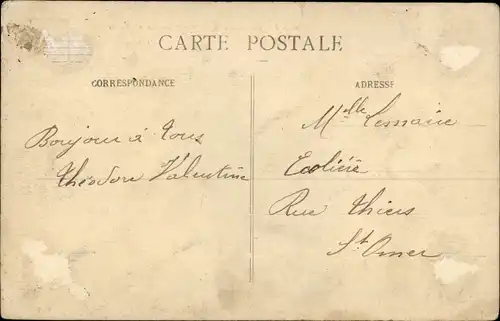 CARTE POSTALE
CORRESPONDANCE
ADRESSE
Bonjour à tous
Théodore Valentine
Melle Lemaire
Rue Thiers
St Omer